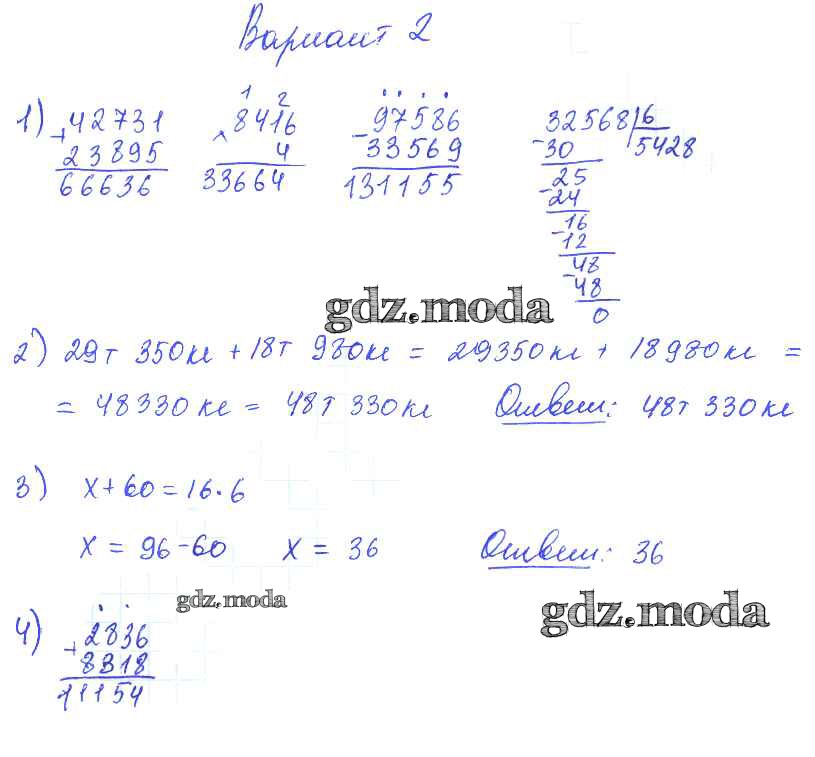 Вариант 2
1) + 42731 × 8416 − 97586 32568 | 6
23895 4 33569 − 30 5428
66636 33664 131155 25
− 24
16
− 12
48
− 48
0
gdz.moda
2) 29т 350кг + 18т 980кг = 29350кг + 18980кг =
= 48330кг = 48т 330кг Ответ: 48т 330кг
3) x + 60 = 16 · 6
x = 96 − 60 x = 36 Ответ: 36
gdz.moda
gdz.moda
4) + 2836
8318
11154